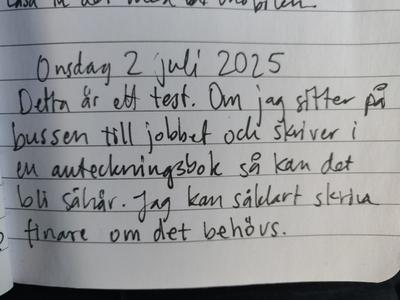 Onsdag 2 juli 2025
Detta är ett test. Om jag sitter på
bussen till jobbet och skriver i
en anteckningsbok så kan det
bli såhär. Jag kan såklart skriva
finare om det behövs.